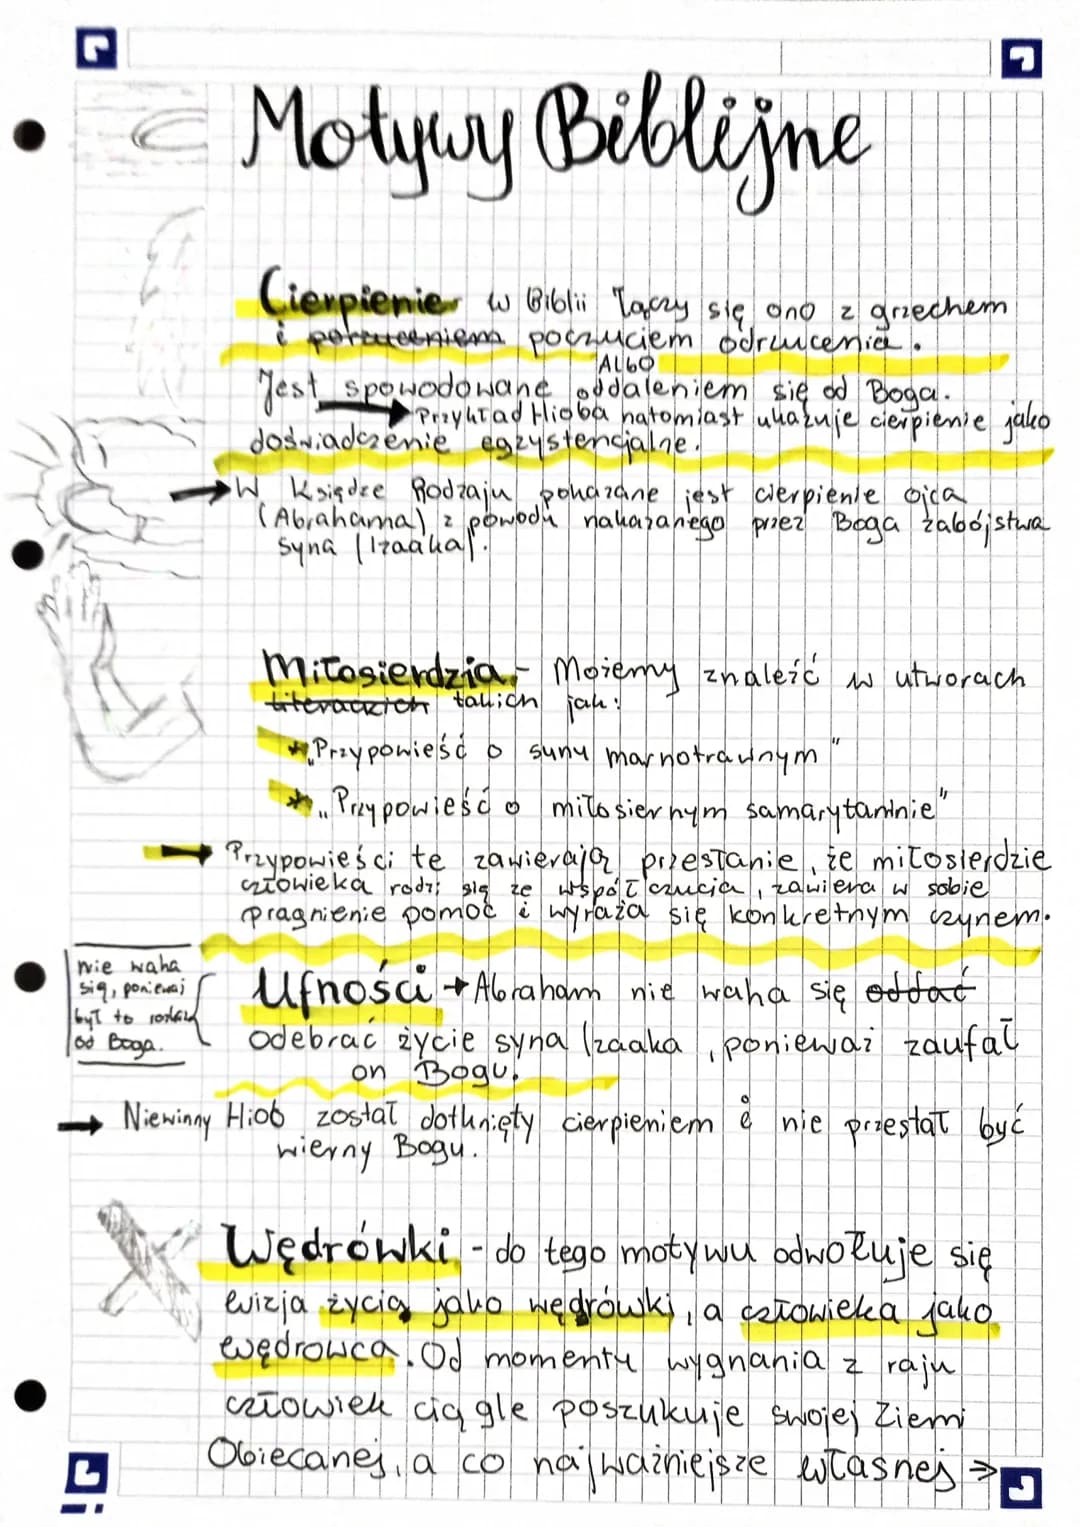 Motywy Biblijne
Cierpienie w Biblii łączy się ono z grzechem
i poczuciem odrzucenia.
ALBO
Jest spowodowane oddaleniem się od Boga.
Przykład Hioba natomiast ukazuje cierpienie jako
doświadczenie egzystencjalne.
→ W Księdze Rodzaju pokazane jest cierpienie ojca
(Abrahama) z powodu nakazanego przez Boga zabójstwa
syna (Izaaka).
Miłosierdzia - Możemy znaleźć w utworach
literackich takich jak:
* „Przypowieść o sunu marnotrawnym"
* „Przypowieść o miłosiernym samarytaninie"
→ Przypowieści te zawierają przesłanie, że miłosierdzie
człowieka rodzi się ze współczucia, zawiera w sobie
pragnienie pomoc i wyraża się konkretnym czynem.
nie waha
się, ponieważ
był to rozkaz
od Boga.
Ufności → Abraham nie waha się oddać
odebrać życie syna Izaaka, ponieważ zaufał
on Bogu.
→ Niewinny Hiob został dotknięty cierpieniem i nie przestał być
wierny Bogu.
Wędrówki - do tego motywu odwołuje się
wizja życia jako wędrówki, a człowieka jako
wędrowca. Od momentu wygnania z raju
człowiek ciągle poszukuje swojej Ziemi
Obiecanej, a co najważniejsze własnej ⇒